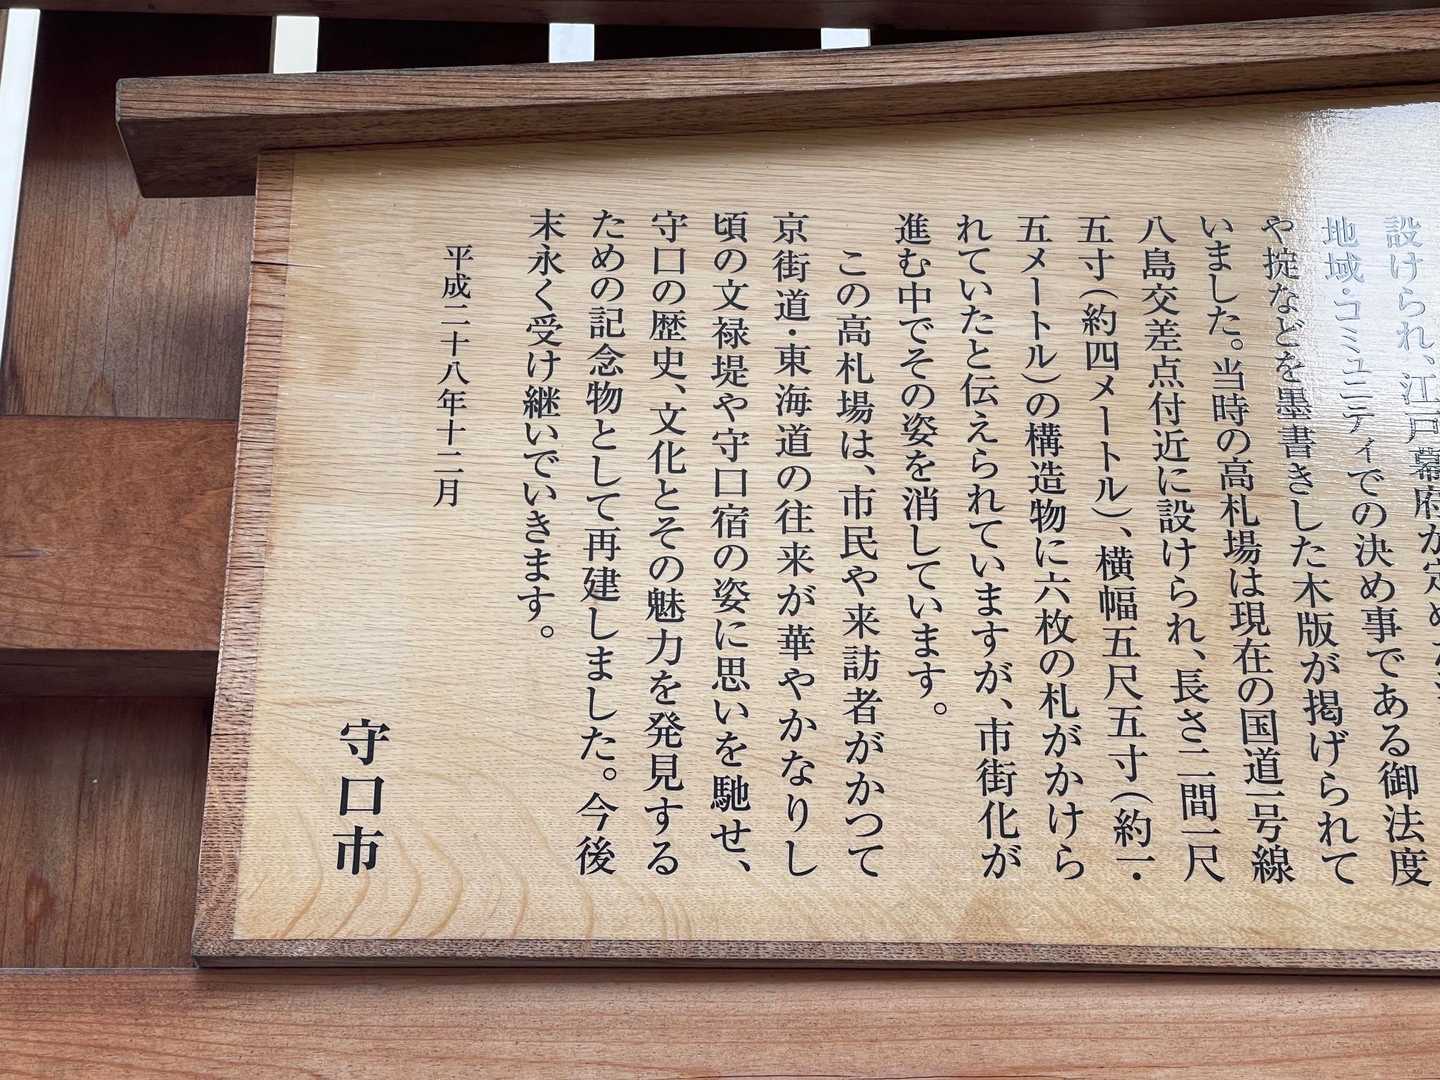 設けられ、江戸幕府が定めた
地域・コミュニティでの決め事である御法度
や掟などを墨書きした木版が掲げられて
いました。当時の高札場は現在の国道一号線
八島交差点付近に設けられ、長さ二間一尺
五寸（約四メートル）、横幅五尺五寸（約一・
五メートル）の構造物に六枚の札がかけら
れていたと伝えられていますが、市街化が
進む中でその姿を消しています。
この高札場は、市民や来訪者がかつて
京街道・東海道の往来が華やかなりし
頃の文禄堤や守口宿の姿に思いを馳せ、
守口の歴史、文化とその魅力を発見する
ための記念物として再建しました。今後
末永く受け継いでいきます。
平成二十八年十二月
守口市